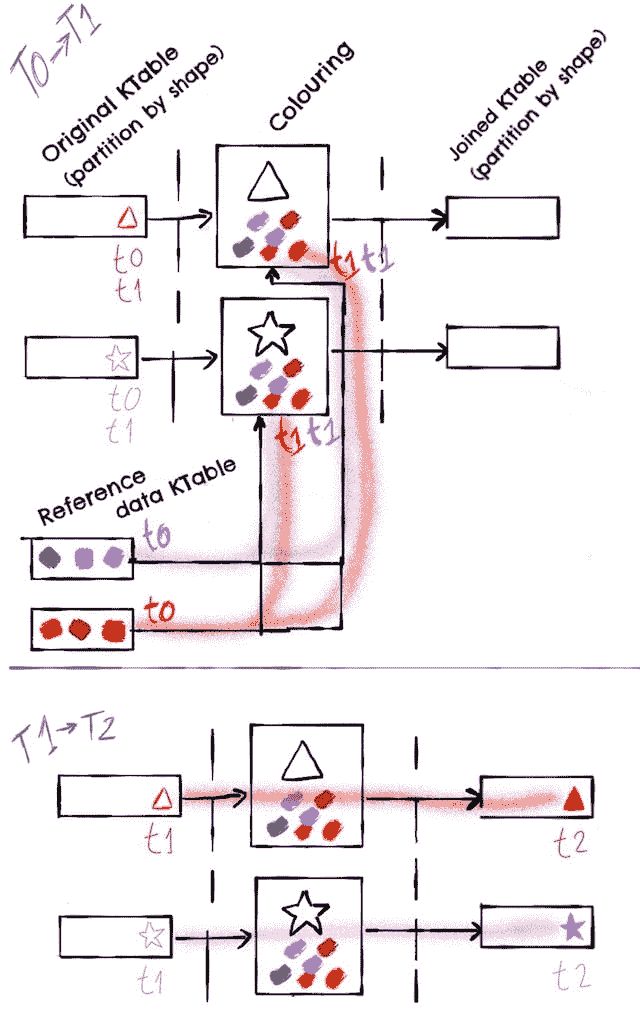 T0→T1
Original KTable
(partition by shape)
Colouring
Joined KTable
(partition by shape)
t0
t1
t1 t1
t0
t1
t1 t1
Reference
data KTable
t0
t0
T1→T2
t1
t2
t1
t2